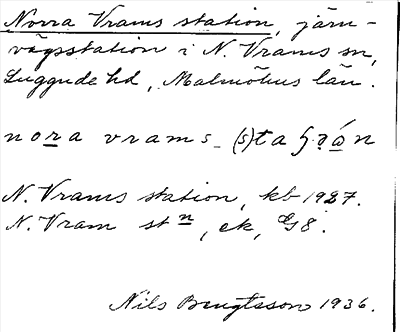 Norra Vrams station, järn-
vägsstation i N. Vrams sn,
Luggude hd, Malmöhus län.
nora vrams-(s)ta
N. Vrams station, kb 1927.
N. Vram stn, ek, G8.
Nils Bengtsson 1936.